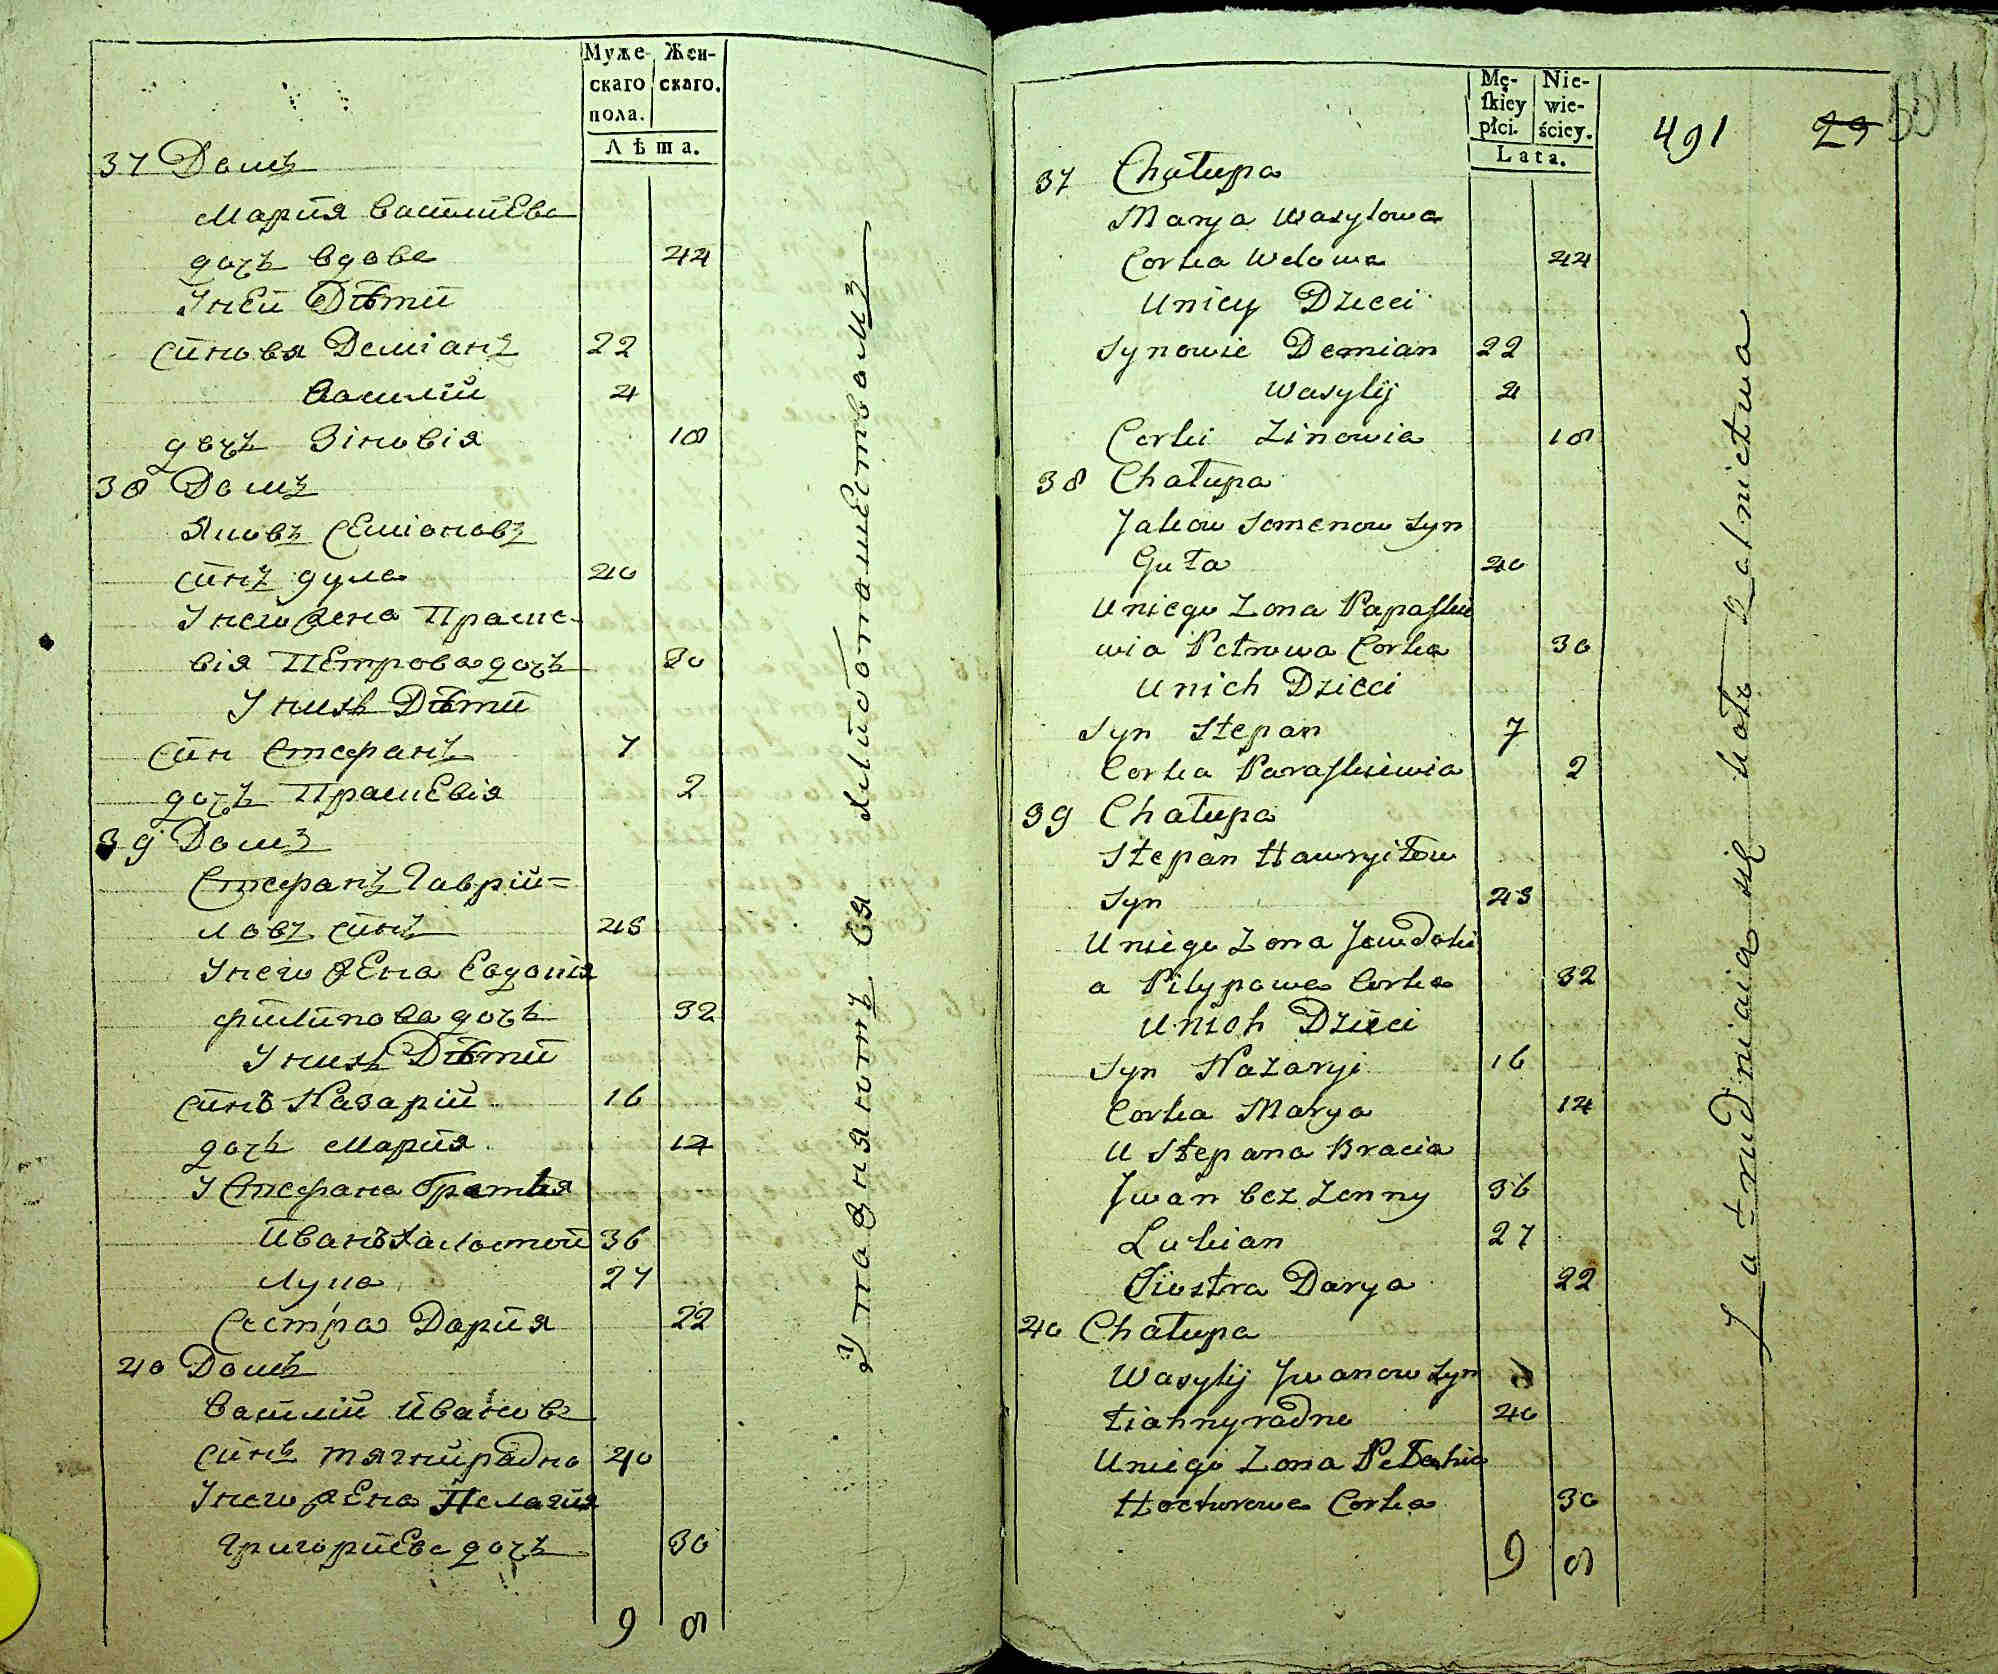 Муже- Жен-
скаго скаго.
пола.
Лѣта.
37 Домъ
Мария Василиева
дочъ вдова 44
У ней Дѣти
Синовя Деміанъ 22
Василій 4
дочъ Зіновія 18
38 Домъ
Яковъ Семіоновъ
синъ гула 40
У него жена Праске-
вія Петрова дочъ 30
У нихъ Дѣти
Син Стефанъ 7
дочъ Праскевія 2
39 Домъ
Стефанъ Гаврій=
ловъ синъ 45
У него жена Евдокія
филипова дочъ 32
У нихъ Дѣти
синъ Назарій 16
дочъ Мария 14
У Стефана братья
Иванъ халостой 36
Лука 27
Сестра Дария 22
40 Домъ
Василій Иванов
синъ тягнирадно 40
У него жена Пелагия
Григориева дочъ 30
9 8
Упражняютъ ся хлибопашествомъ
Mę- Nie-
skiey wie-
płci. ściey.
Lata.
491 29
37 Chałupa
Marya Wasylowa
Corka Wdowa 44
U niey Dzieci
Synowie Demian 22
Wasylij 4
Corki Zinowia 18
38 Chałupa
Jakow Semenow Syn
Guła 40
U niego Zona Papaskie
wia Petrowa Corka 30
U nich Dzieci
Syn Stepan 7
Corka Paraskiewia 2
39 Chałupa
Stepan Hawryiłow
Syn 45
U niego Zona Jewdoki
a Pilypowa Corka 32
U nich Dzieci
Syn Nazaryi 16
Corka Marya 14
U Stepana Bracia
Jwan bez Zenny 36
Lukian 27
Siostra Darya 22
40 Chałupa
Wasylij Jwanow Syn
tiahnyradno 40
U niego Zona Pełahia
Hrehorowa Corka 30
9 8
Zatrudniaią się koło Rolnictwa